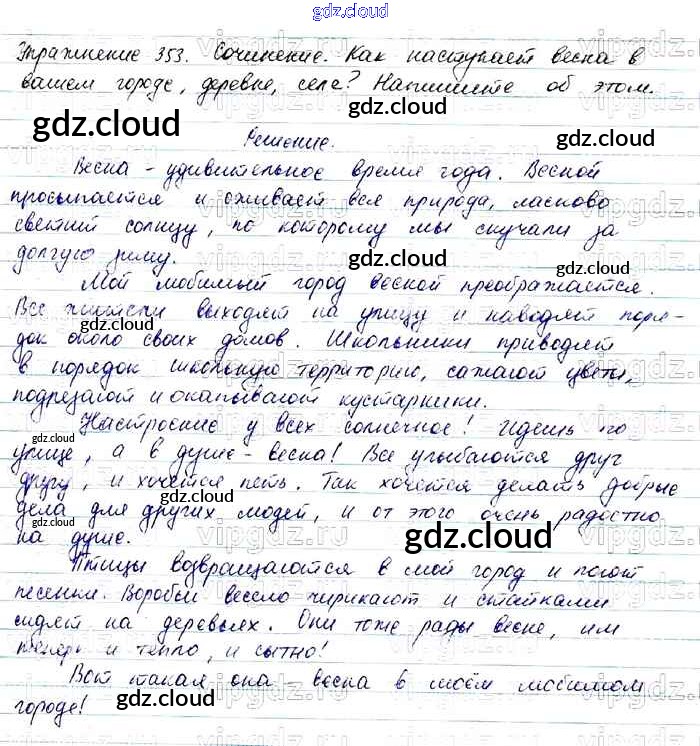 gdz.cloud
Упражнение 353. Сочинение. Как наступает весна в
вашем городе, деревне, селе? Напишите об этом.
gdz.cloud
gdz.cloud
Решение.
Весна - удивительное время года. Весной
просыпается и оживает вся природа, ласково
светит солнцу, по которому мы скучали за
долгую зиму.
gdz.cloud
gdz.cloud
Мой любимый город весной преображается.
Все жители выходят на улицу и наводят поря-
gdz.cloud
док около своих домов. Школьники приводят
в порядок школьную территорию, сажают цветы,
подрезают и окапывают кустарники.
gdz.cloud
Настроение у всех солнечное! Идёшь по
улице, а в душе - весна! Все улыбаются друг
gdz.cloud
другу, и хочется петь. Так хочется делать добрые
gdz.cloud
дела для других людей, и от этого очень радостно
на душе.
gdz.cloud
Птицы возвращаются в мой город и поют
песенки. Воробьи весело чирикают и стайками
сидят на деревьях. Они тоже рады весне, им
теперь и тепло, и сытно!
Вот такая она весна в моём любимом
городе!